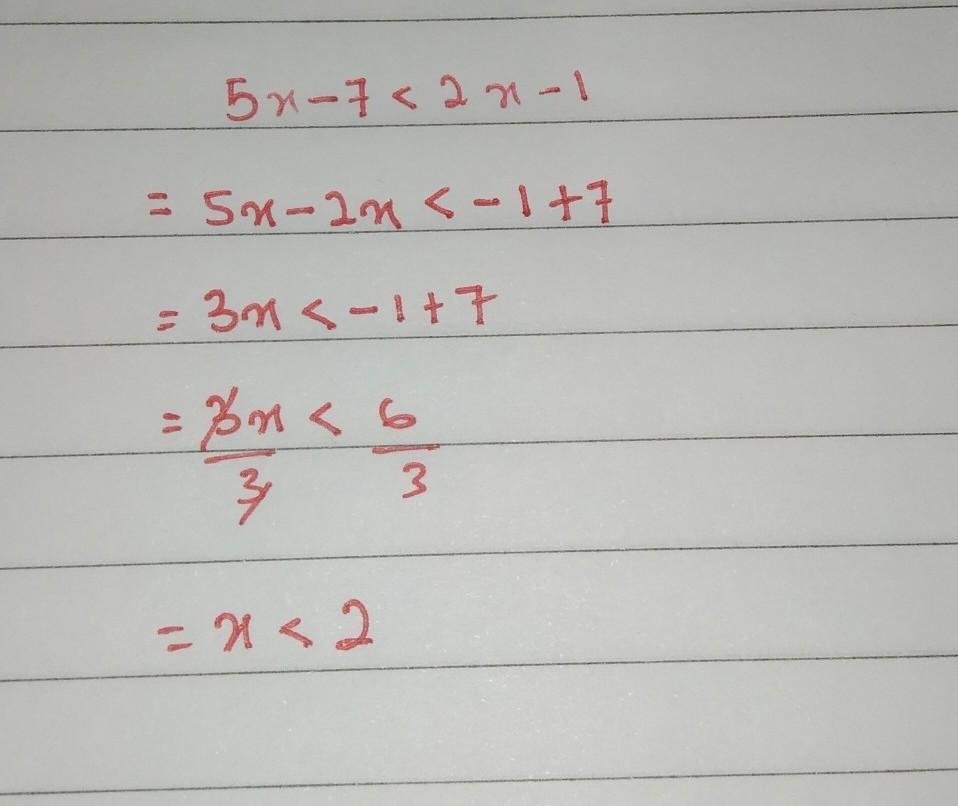 5x-7<2x-1
= 5x-2x<-1+7
= 3x<-1+7
= 3x/3 < 6/3
= x<2